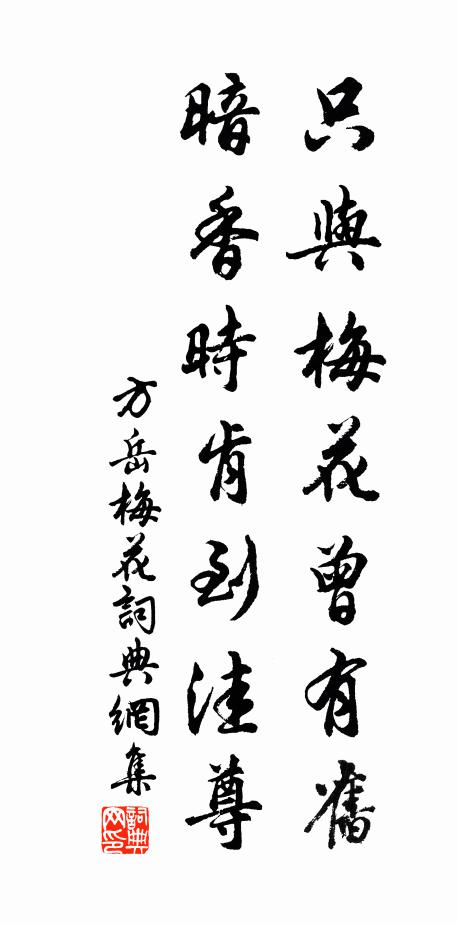 只與梅花曾有舊
暗香時肯到洼尊
方岳梅花詞典網集
詞典网印